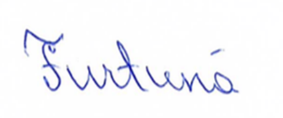 Furtună